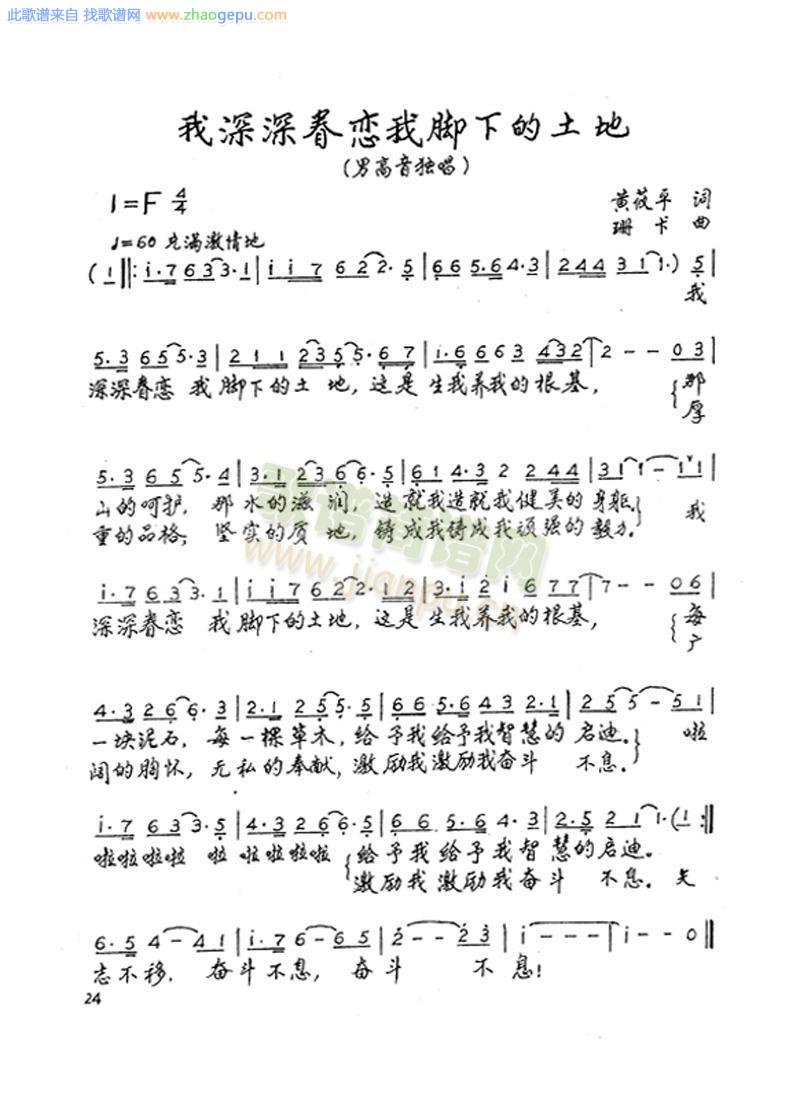 此歌谱来自 找歌谱网 www.zhaogepu.com
我深深眷恋我脚下的土地
(男高音独唱)
1=F 4/4
黄莜平 词
珊卡 曲
♩=60 充满激情地
(1‖:i·763 3·1|i i7 622·5|665·64·3|244 311·)5|
我
5·3655·3|211 2355·67|1·6663 432|2--03|
深深眷恋 我脚下的土地,这是生我养我的根基,
那
厚
5·3655·4|3·12366·5|614·32244|311-11|
山的呵护,那水的滋润,造就我造就我健美的身躯。 我
重的品格,坚实的质地,铸成我铸成我顽强的毅力。
i·7633·1|i i7622·12|3·i2i677|7--06|
深深眷恋 我脚下的土地,这是生我养我的根基,
每
广
4·3266·3|2·1255·5|665·6432·1|255-51|
一块泥石,每一棵草木,给予我给予我智慧的启迪。 啦
阔的胸怀,无私的奉献,激励我激励我奋斗 不息。
i·7633·5|4·3266·5|665·64·3|2·521 1·(1:‖
啦啦啦啦 啦 啦啦啦啦 给予我给予我智慧的启迪。
激励我激励我奋斗 不息。矢
6·54-41|i·76-65|2--23|i---|i--0‖
志不移,奋斗不息,奋斗 不息!
24
歌谱简谱网
www.jianpu.cn